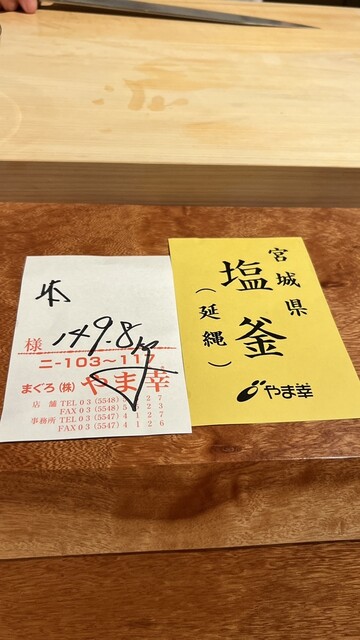 様 149.8
ニ-103~117
まぐろ(株) やま幸
店 舗 TEL 03 (5548)
FAX 03 (5548)
事務所 TEL 03 (5547) 4 1 2 7
FAX 03 (5547) 4 1 2 6
宮城県
塩釜
(延縄)
やま幸